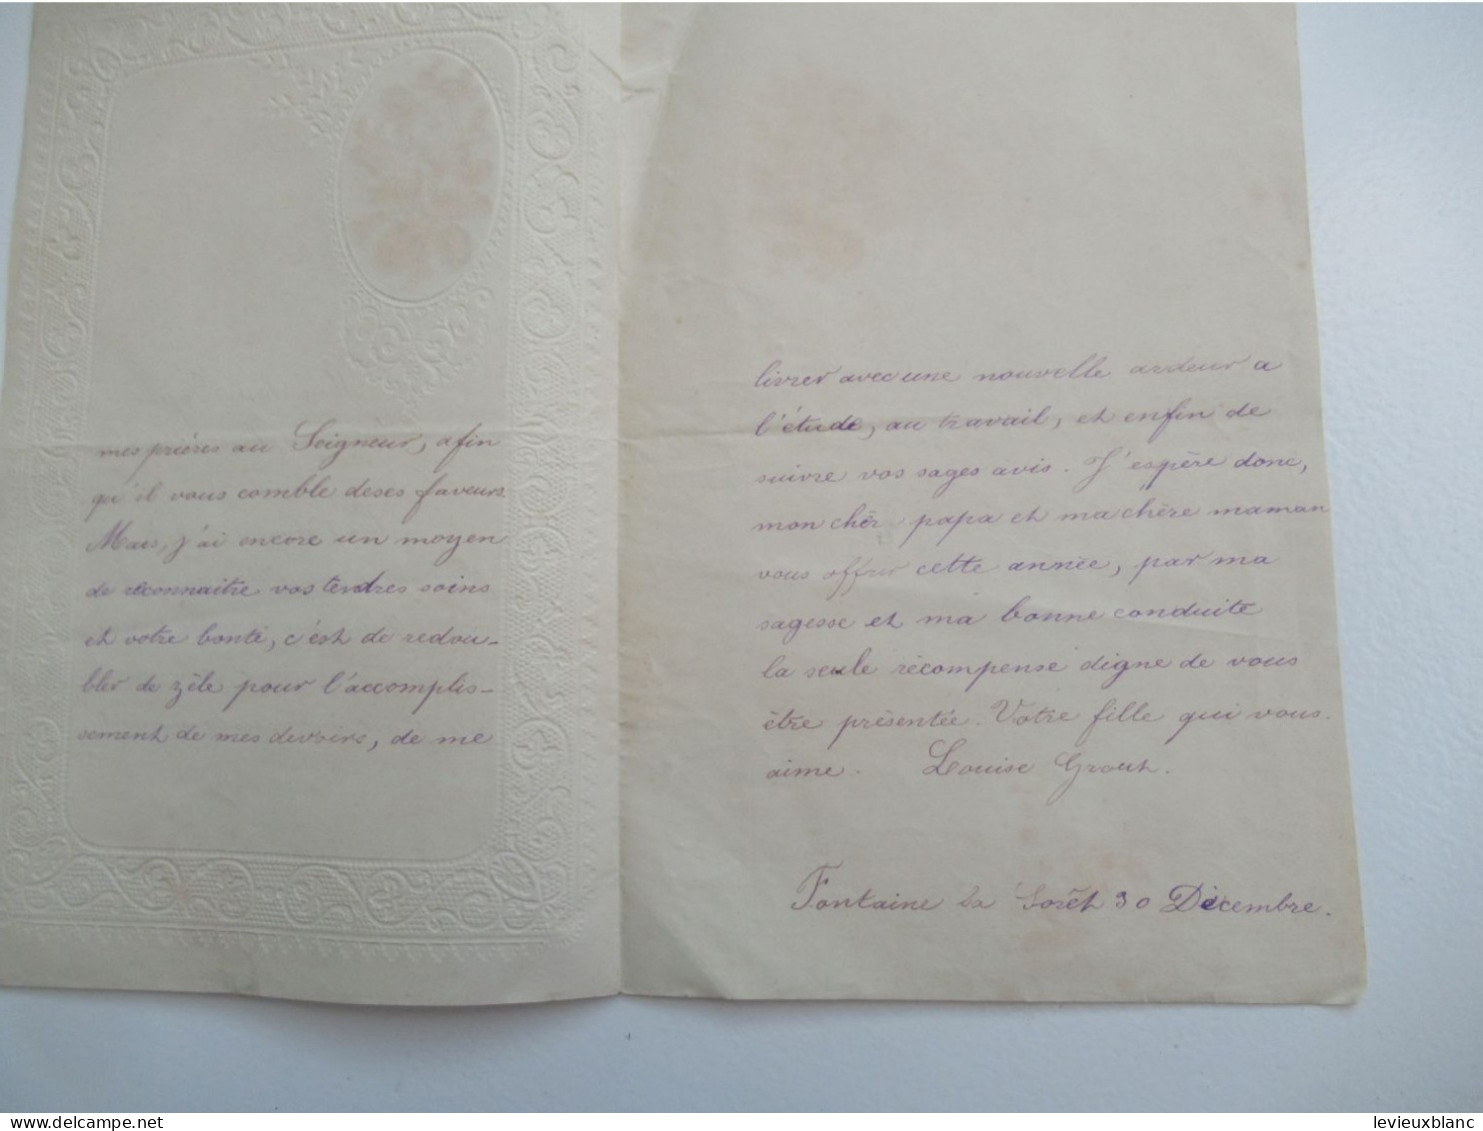 mes prières au Seigneur, afin
qu'il vous comble de ses faveurs
Mais, j'ai encore un moyen
de reconnaitre vos tendres soins
et votre bonté, c'est de redou-
bler de zèle pour l'accomplis-
sement de mes devoirs, de me
livrer avec une nouvelle ardeur a
l'étude, au travail, et enfin de
suivre vos sages avis. J'espère donc,
mon chèr papa et ma chère maman
vous offrir cette année, par ma
sagesse et ma bonne conduite
la seule récompense digne de vous
être présentée. Votre fille qui vous
aime. Louise Grout.
Fontaine la Sorêt 30 Décembre.
levieuxblanc